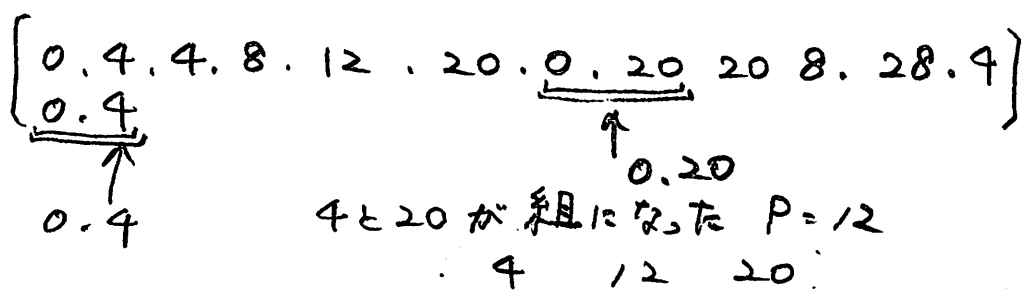 0.4.4.8.12.20.0.20 20 8.28.4
0.4
0.20
0.4
4と20が組になった P=12
4 12 20